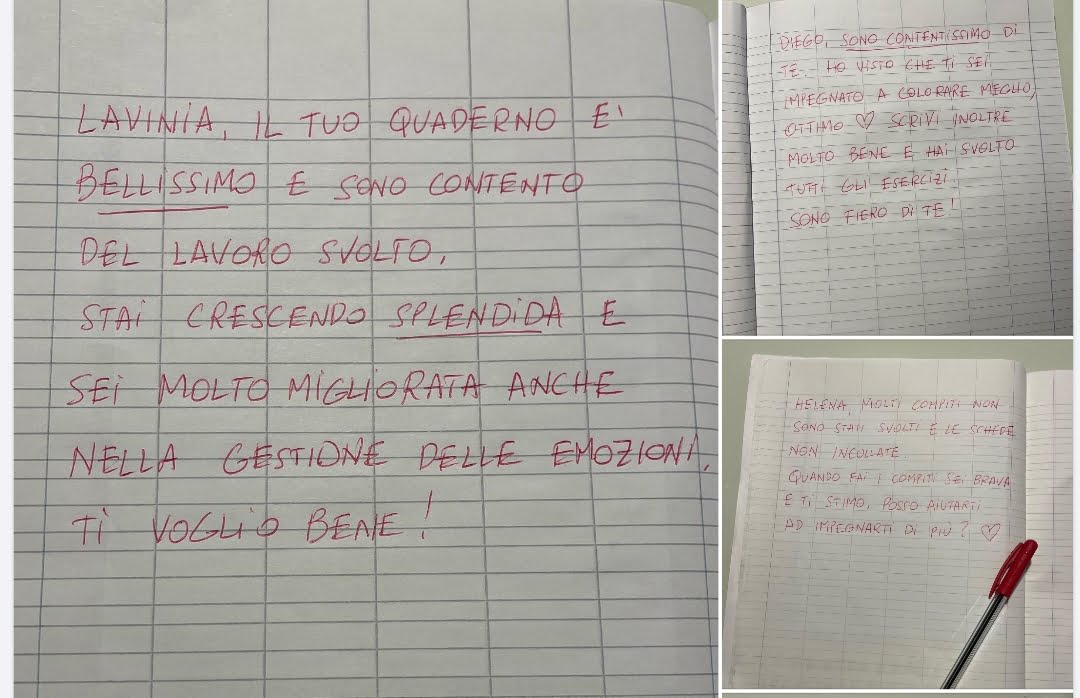 LAVINIA, IL TUO QUADERNO E'
BELLISSIMO E SONO CONTENTO
DEL LAVORO SVOLTO.
STAI CRESCENDO SPLENDIDA E
SEI MOLTO MIGLIORATA ANCHE
NELLA GESTIONE DELLE EMOZIONI.
TI VOGLIO BENE!
DIEGO, SONO CONTENTISSIMO DI
TE. HO VISTO CHE TI SEI
IMPEGNATO A COLORARE MEGLIO,
OTTIMO ♡ SCRIVI INOLTRE
MOLTO BENE E HAI SVOLTO
TUTTI GLI ESERCIZI.
SONO FIERO DI TE!
HELENA, MOLTI COMPITI NON
SONO STATI SVOLTI E LE SCHEDE
NON INCOLLATE.
QUANDO FAI I COMPITI SEI BRAVA
E TI STIMO, POSSO AIUTARTI
AD IMPEGNARTI DI PIÙ? ♡